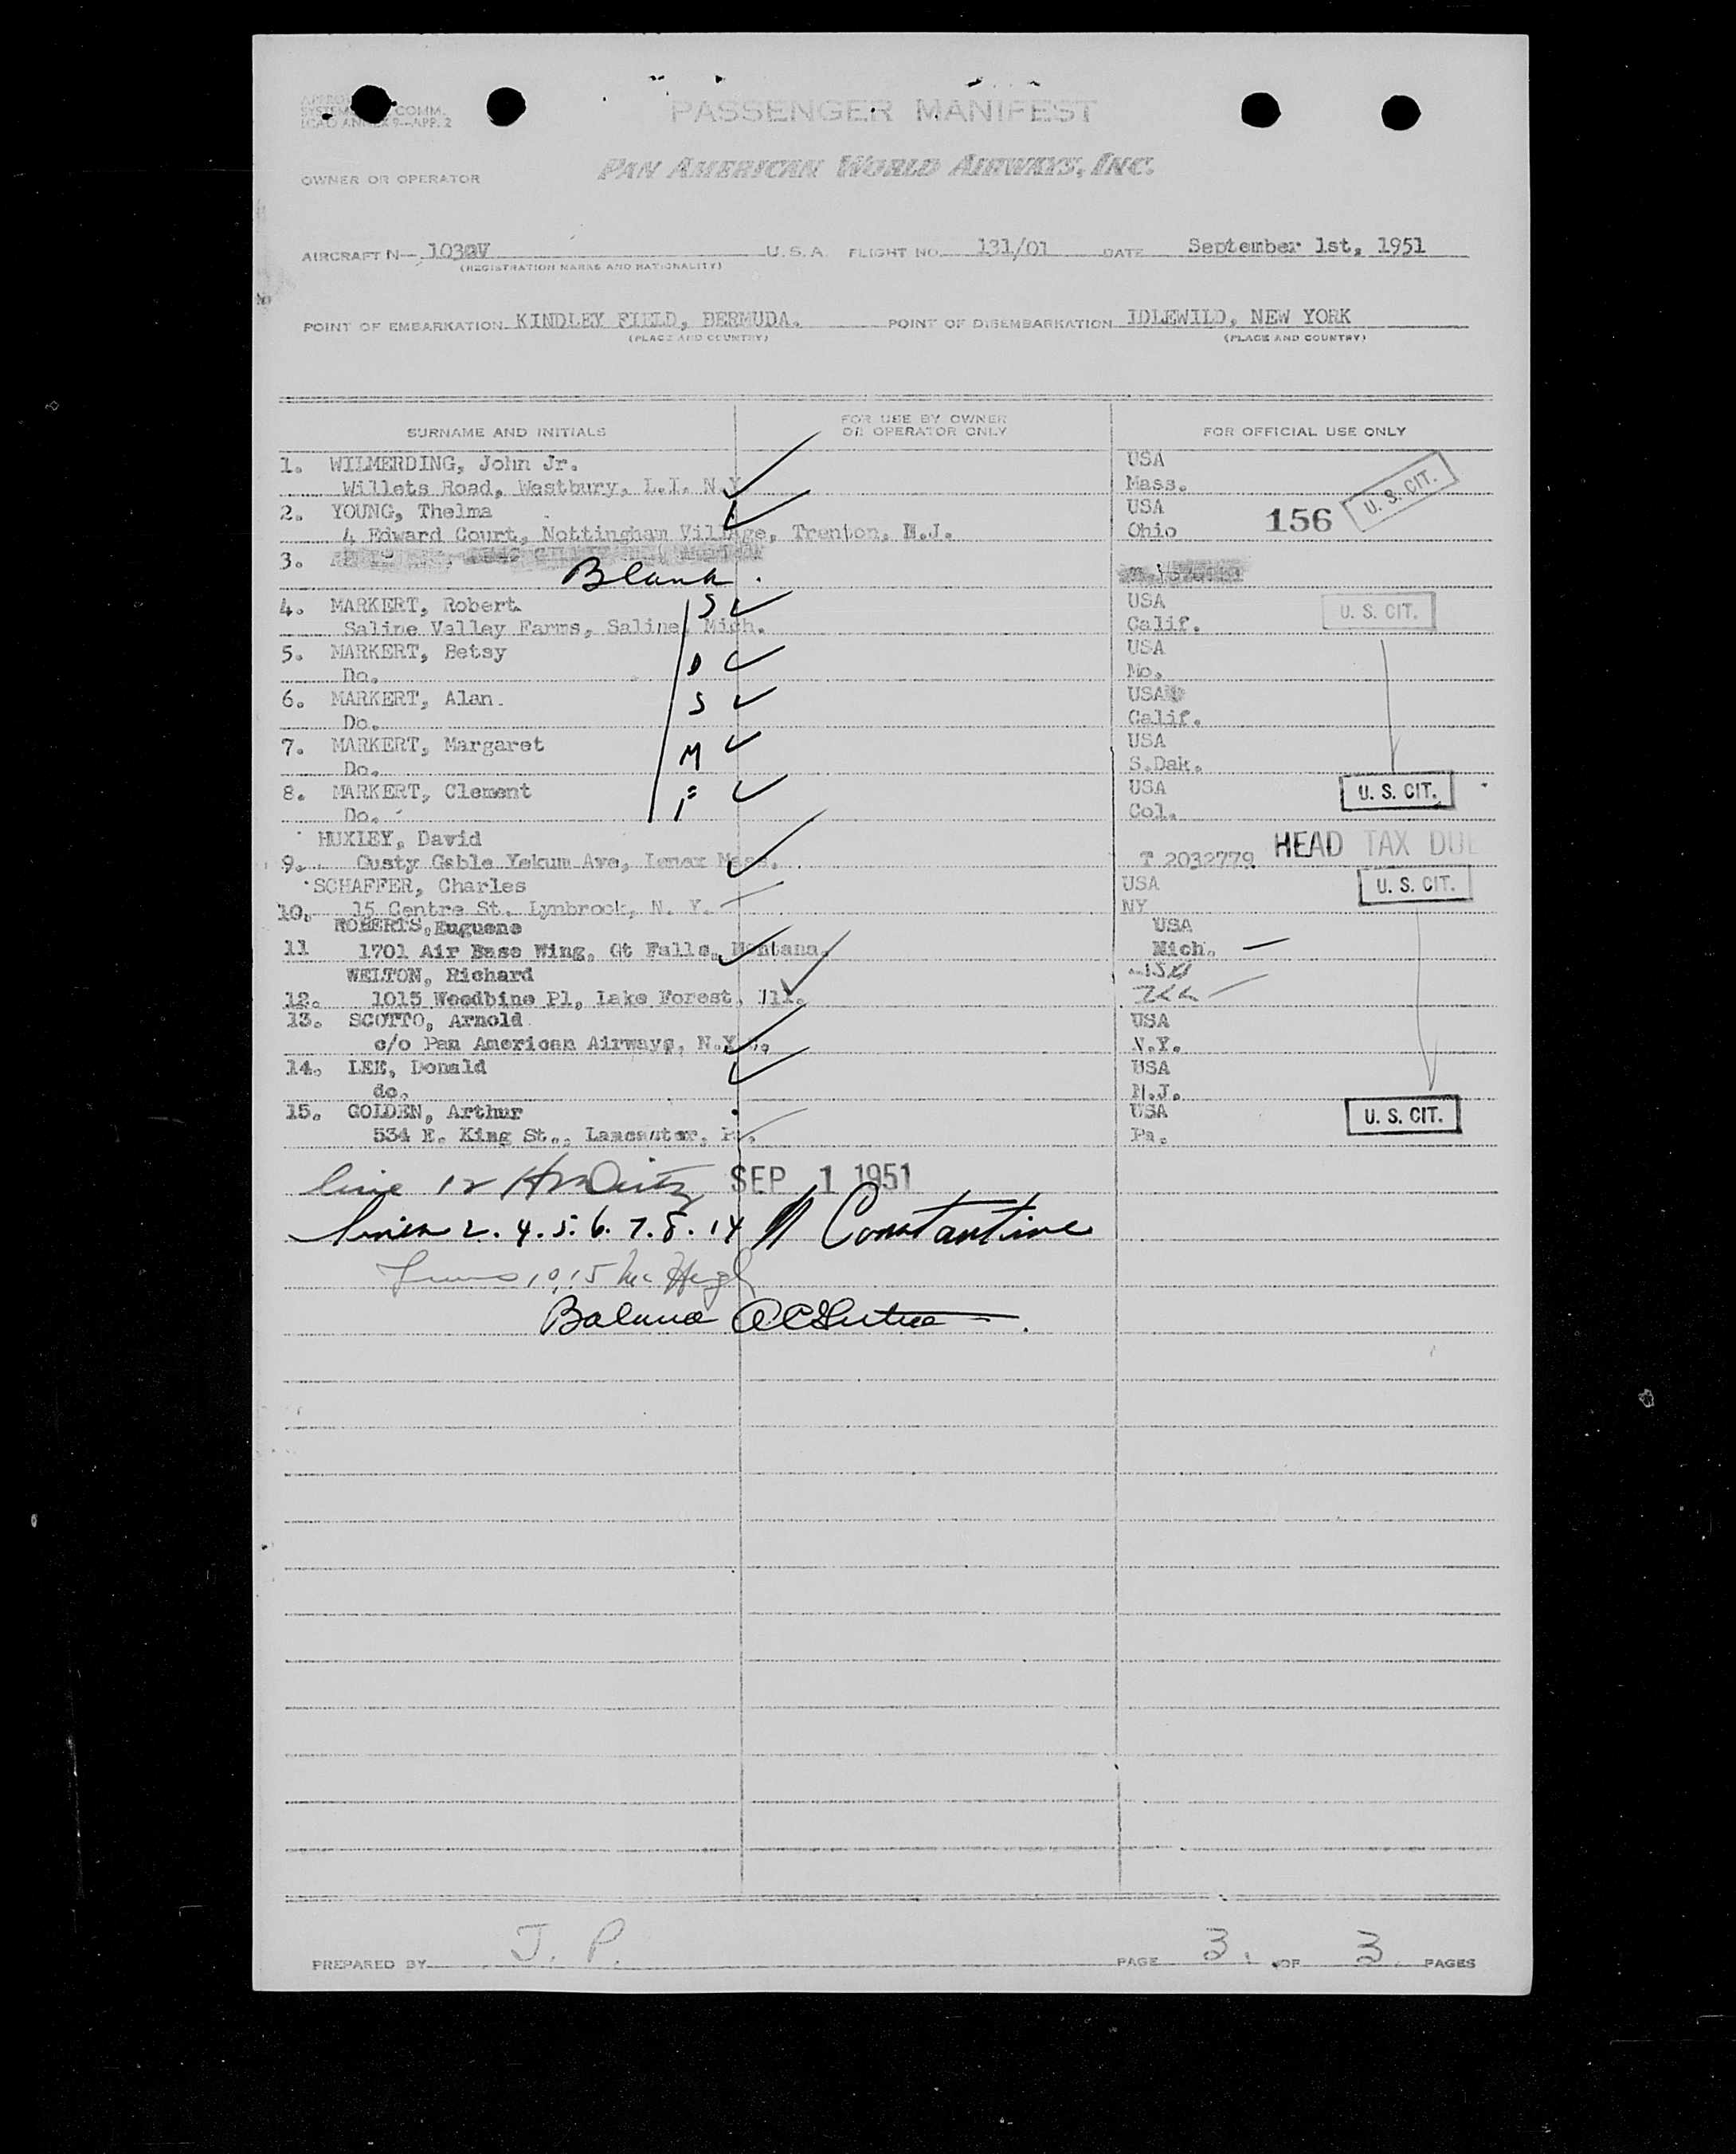 SYSTEM COMM.
ICAO ANNEX 9—APP. 2
PASSENGER MANIFEST
OWNER OR OPERATOR PAN AMERICAN WORLD AIRWAYS, INC.
AIRCRAFT N— 1030V U.S.A. FLIGHT NO. 131/01 DATE September 1st, 1951
(REGISTRATION MARKS AND NATIONALITY)
POINT OF EMBARKATION KINDLEY FIELD, BERMUDA. POINT OF DISEMBARKATION IDLEWILD, NEW YORK
(PLACE AND COUNTRY) (PLACE AND COUNTRY)
SURNAME AND INITIALS FOR USE BY OWNER OR OPERATOR ONLY FOR OFFICIAL USE ONLY
1. WILMERDING, John Jr. USA
Willets Road, Westbury, L.I. N.Y Mass. U. S. CIT.
2. YOUNG, Thelma USA 156
4 Edward Court, Nottingham Village, Trenton, N.J. Ohio
3.
Blank.
4. MARKERT, Robert S USA U. S. CIT.
Saline Valley Farms, Saline, Mich. Calif.
5. MARKERT, Betsy D USA
Do. Mo.
6. MARKERT, Alan. S USA
Do. Calif.
7. MARKERT, Margaret M USA
Do. S.Dak.
8. MARKERT, Clement F USA U. S. CIT.
Do. Col.
HUXLEY, David HEAD TAX DUE
9. Gusty Gable Yokum Ave, Lenox Mass. T 2032779
SCHAFFER, Charles USA U. S. CIT.
10. 15 Centre St. Lynbrook, N. Y. NY
ROBERTS, Euguene USA
11 1701 Air Base Wing, Gt Falls, Montana. Mich.
WELTON, Richard
12. 1015 Woodbine Pl, Lake Forest, Ill.
13. SCOTTO, Arnold USA
c/o Pan American Airways, N.Y. N.Y.
14. LEE, Donald USA
do. N.J.
15. GOLDEN, Arthur USA U. S. CIT.
534 E. King St., Lancaster, Pa. Pa.
line 12 SEP 1 1951
Lines 2. 4. 5. 6. 7. 8. 14 Constantine
10, 15 Mc Hugh
Balance
PREPARED BY J. P. PAGE 3. OF 3. PAGES